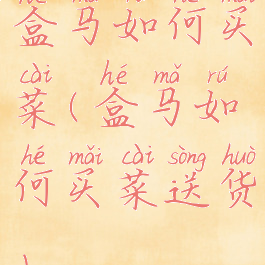 盒马如何买
cài hé mǎ rú
菜(盒马如
hé mǎi cài sòng huò
何买菜送货
)